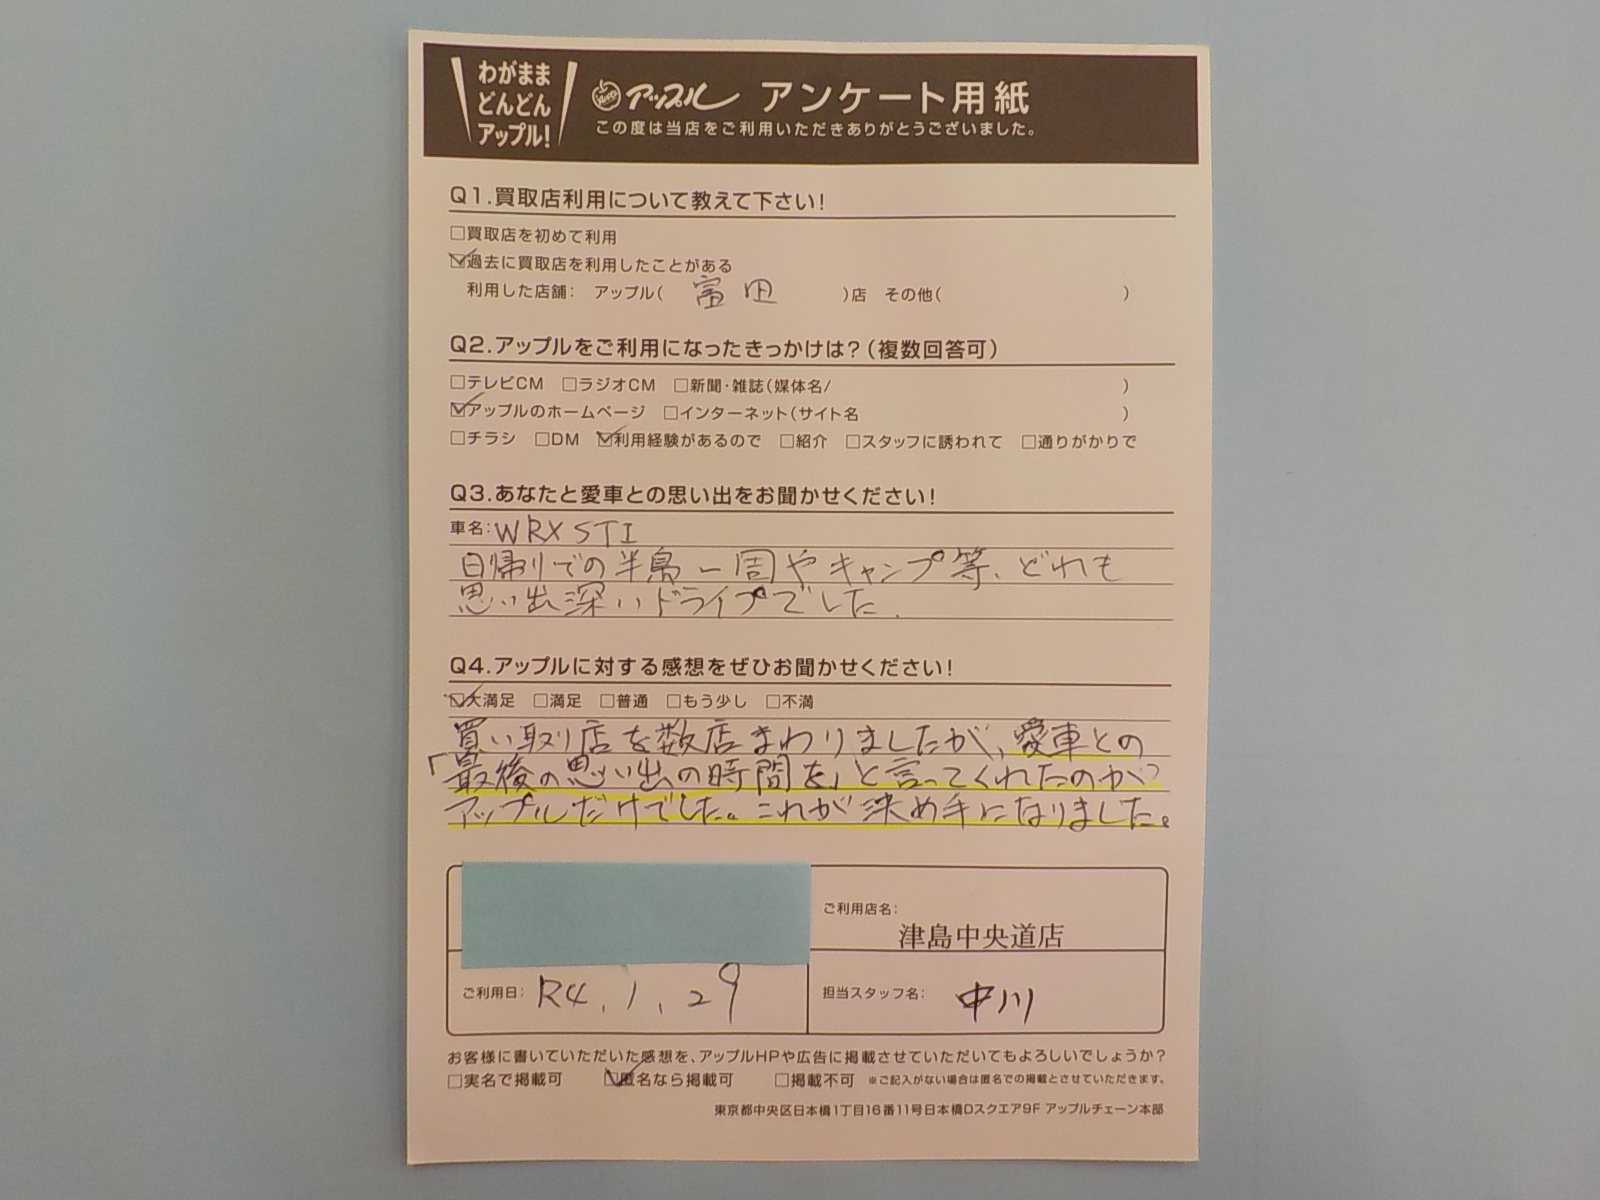 わがまま
どんどん
アップル!
アップル アンケート用紙
この度は当店をご利用いただきありがとうございました。
Q1.買取店利用について教えて下さい!
□買取店を初めて利用
☑過去に買取店を利用したことがある
利用した店舗: アップル( 富田 )店 その他( )
Q2.アップルをご利用になったきっかけは?(複数回答可)
□テレビCM □ラジオCM □新聞・雑誌(媒体名/ )
☑アップルのホームページ □インターネット(サイト名 )
□チラシ □DM ☑利用経験があるので □紹介 □スタッフに誘われて □通りがかりで
Q3.あなたと愛車との思い出をお聞かせください!
車名:WRX STI
日帰りでの半島一周やキャンプ等、どれも
思い出深いドライブでした.
Q4.アップルに対する感想をぜひお聞かせください!
☑大満足 □満足 □普通 □もう少し □不満
買い取り店を数店まわりましたが、愛車との
「最後の思い出の時間を」と言ってくれたのが
アップルだけでした。これが決め手になりました。
ご利用店名:
津島中央道店
ご利用日: R4.1.29
担当スタッフ名: 中川
お客様に書いていただいた感想を、アップルHPや広告に掲載させていただいてもよろしいでしょうか?
□実名で掲載可 ☑匿名なら掲載可 □掲載不可 ※ご記入がない場合は匿名での掲載とさせていただきます。
東京都中央区日本橋1丁目16番11号日本橋Dスクエア9F アップルチェーン本部